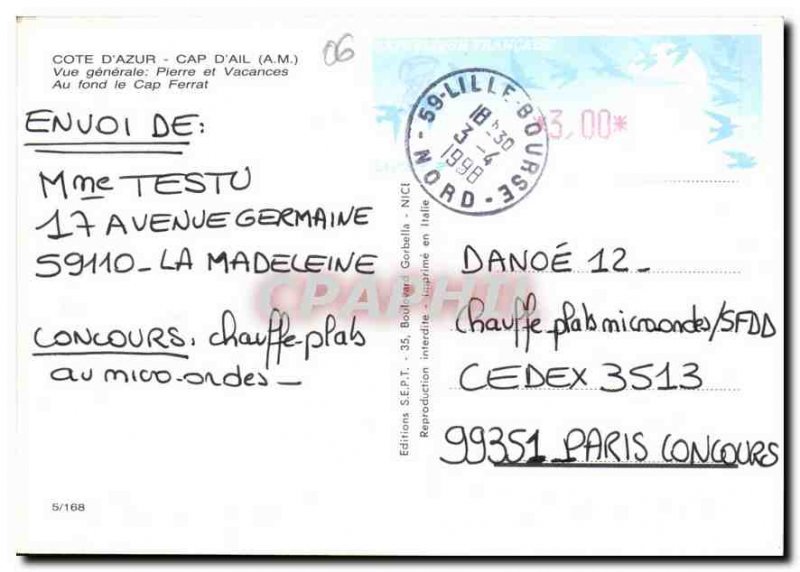 COTE D'AZUR - CAP D'AIL (A.M.)
Vue générale: Pierre et Vacances
Au fond le Cap Ferrat
06
ENVOI DE:
Mme TESTU
17 AVENUE GERMAINE
59110 - LA MADELEINE
CONCOURS: chauffe-plats
au micro-ondes -
5/168
Editions S.E.P.T. - 35, Boulevard Gorbella - NICE
Reproduction interdite - Imprimé en Italie
REPUBLIQUE FRANÇAISE
*3,00*
59-LILLE-BOURSE
18h30
3-4
1998
NORD
DANOÉ 12 -
chauffe-plats microondes/SFDD
CEDEX 3513
99351 PARIS CONCOURS
CPAPHIL